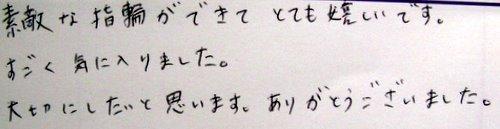 素敵な指輪ができて とても嬉しいです。
すごく気に入りました。
大切にしたいと思います。ありがとうございました。